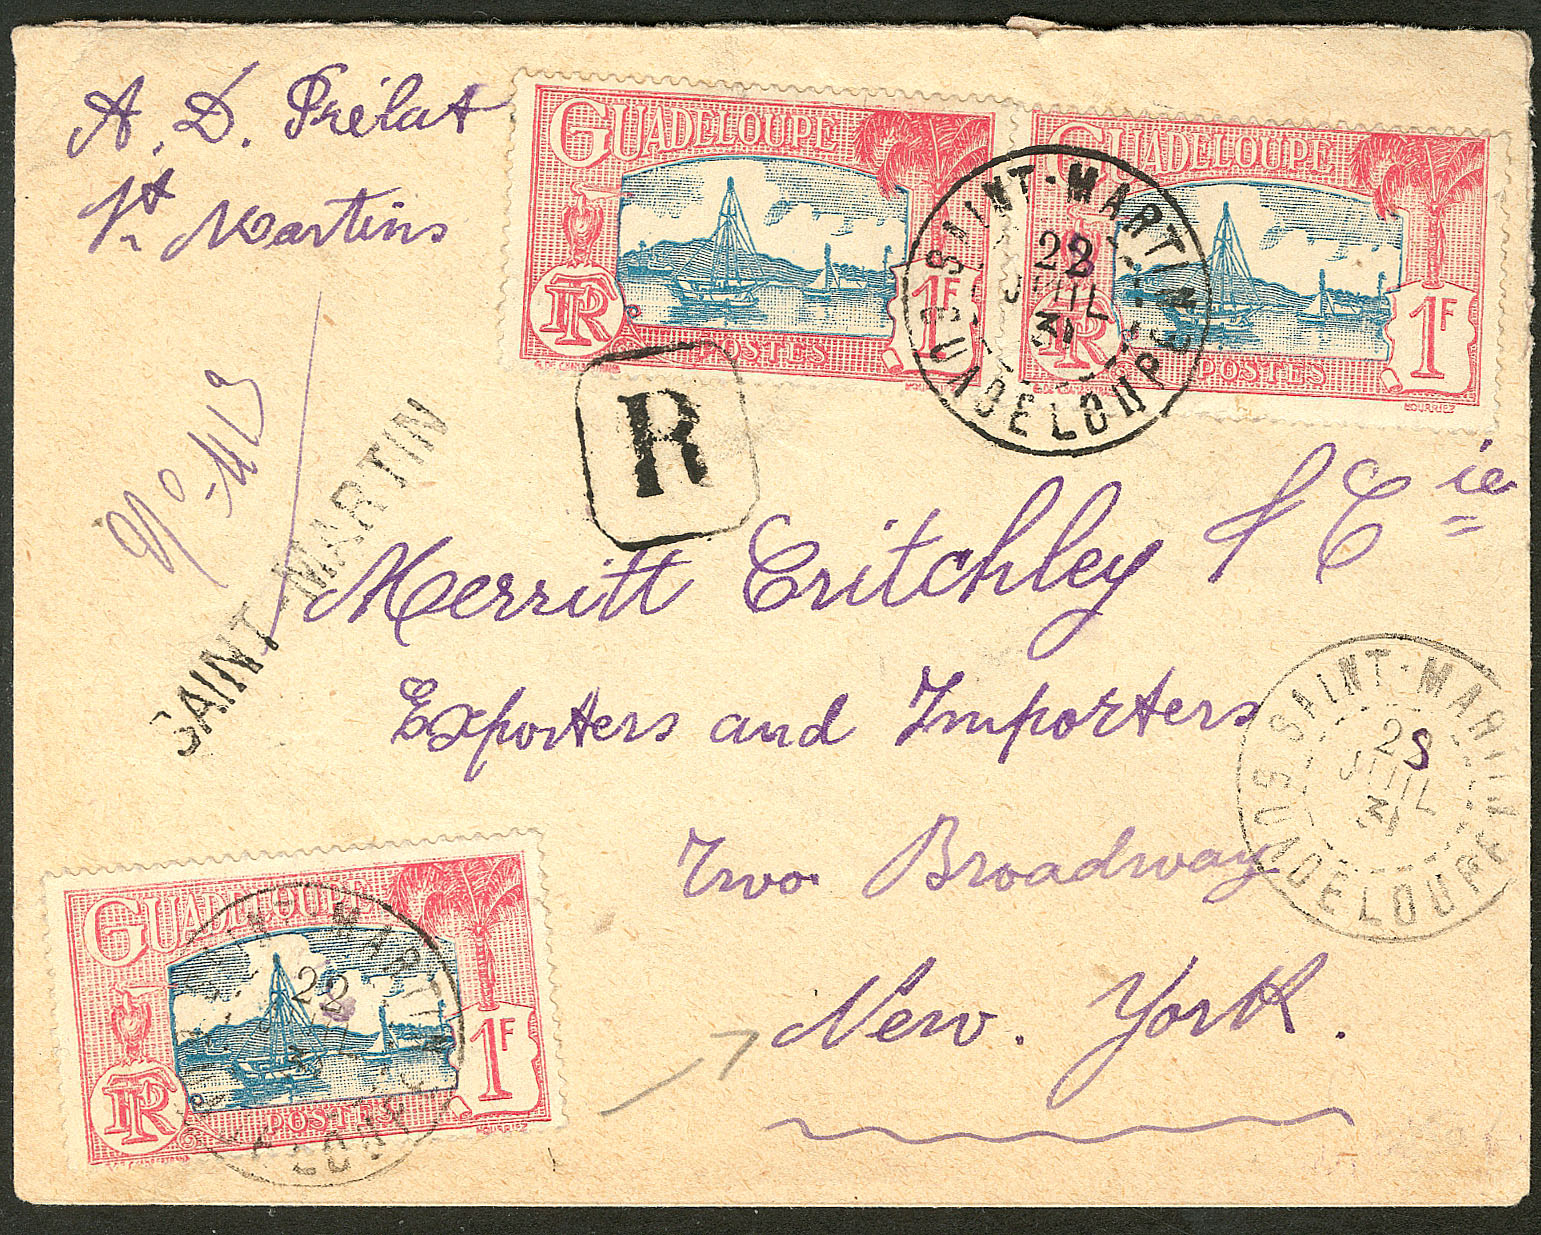 A. D. Prélat
St Martins
GUADELOUPE
RF
1F
POSTES
GUADELOUPE
RF
1F
POSTES
SAINT-MARTIN
22
JUIL
31
GUADELOUPE
R
SAINT-MARTIN
Merritt Critchley & Cie
Exporters and Importers
Two Broadway
New. York.
SAINT-MARTIN
JUIL
31
GUADELOUPE
GUADELOUPE
RF
1F
POSTES
MARTIN
22